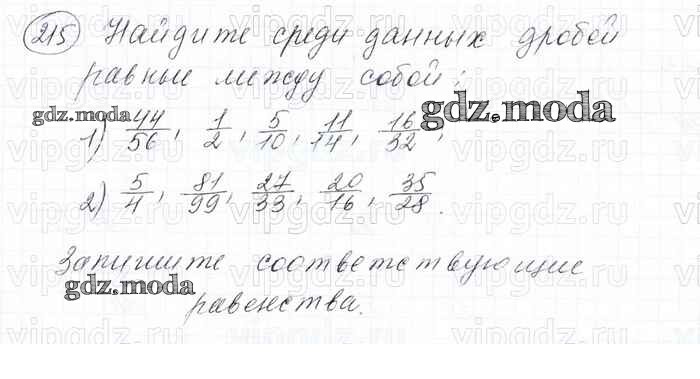 215 Найдите среди данных дробей
равные между собой:
gdz.moda
1) 44/56, 1/2, 5/10, 11/14, 16/32,
gdz.moda
2) 5/4, 81/99, 27/33, 20/16, 35/28.
Запишите соответствующие
gdz.moda
равенства.
vipgdz.ru